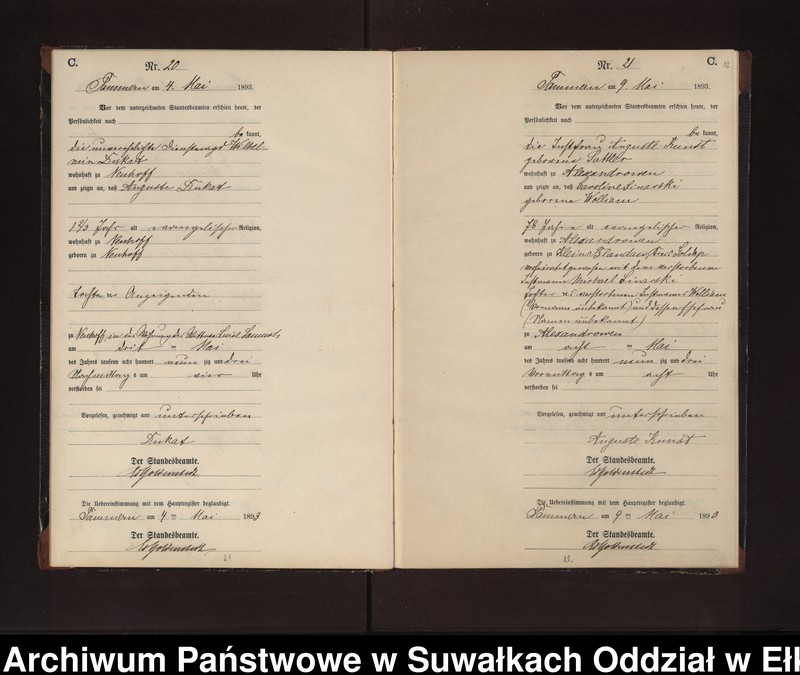 C.
Nr. 20
Pammern am 4. Mai 1893.
Vor dem unterzeichneten Standesbeamten erschien heute, der
Persönlichkeit nach
be kannt,
die unverehelichte Dienstmagd Wilhel
mine Dukat
wohnhaft zu Neuhoff
und zeigte an, daß Auguste Dukat
Jahr alt evangelischer Religion,
wohnhaft zu Neuhoff
geboren zu Neuhoff
Tochter der Anzeigenden
zu Neuhoff in der Wohnung des
am drit ten Mai
des Jahres tausend acht hundert neun zig und drei
Nachmittag s um vier Uhr
verstorben sei
Vorgelesen, genehmigt und unterschrieben
Dukat
Der Standesbeamte.
Die Uebereinstimmung mit dem Hauptregister beglaubigt.
Pammern am 4 ten Mai 1893
Der Standesbeamte.
Nr. 21
C.
Pammern am 9. Mai 1893.
Vor dem unterzeichneten Standesbeamten erschien heute, der
Persönlichkeit nach
be kannt,
die Instfrau Auguste Kunst
geborene Sattler
wohnhaft zu Alexandrowen
und zeigte an, daß Caroline Linarski
geborene Wölliam
78 Jahre alt evangelischer Religion,
wohnhaft zu Alexandrowen
geboren zu Klein Blandau Kreis Goldap
verheiratet gewesen mit dem verstorbenen
Instmann Michael Linarski
Tochter des verstorbenen Instmannes Wölliam
(Vorname unbekannt) und dessen Ehefrau
(Namen unbekannt)
zu Alexandrowen
am acht ten Mai
des Jahres tausend acht hundert neun zig und drei
Vormittag s um acht Uhr
verstorben sei
Vorgelesen, genehmigt und unterschrieben
Auguste Kunst
Der Standesbeamte.
Die Uebereinstimmung mit dem Hauptregister beglaubigt.
Pammern am 9 ten Mai 1893
Der Standesbeamte.
Archiwum Państwowe w Suwałkach Oddział w Ełk